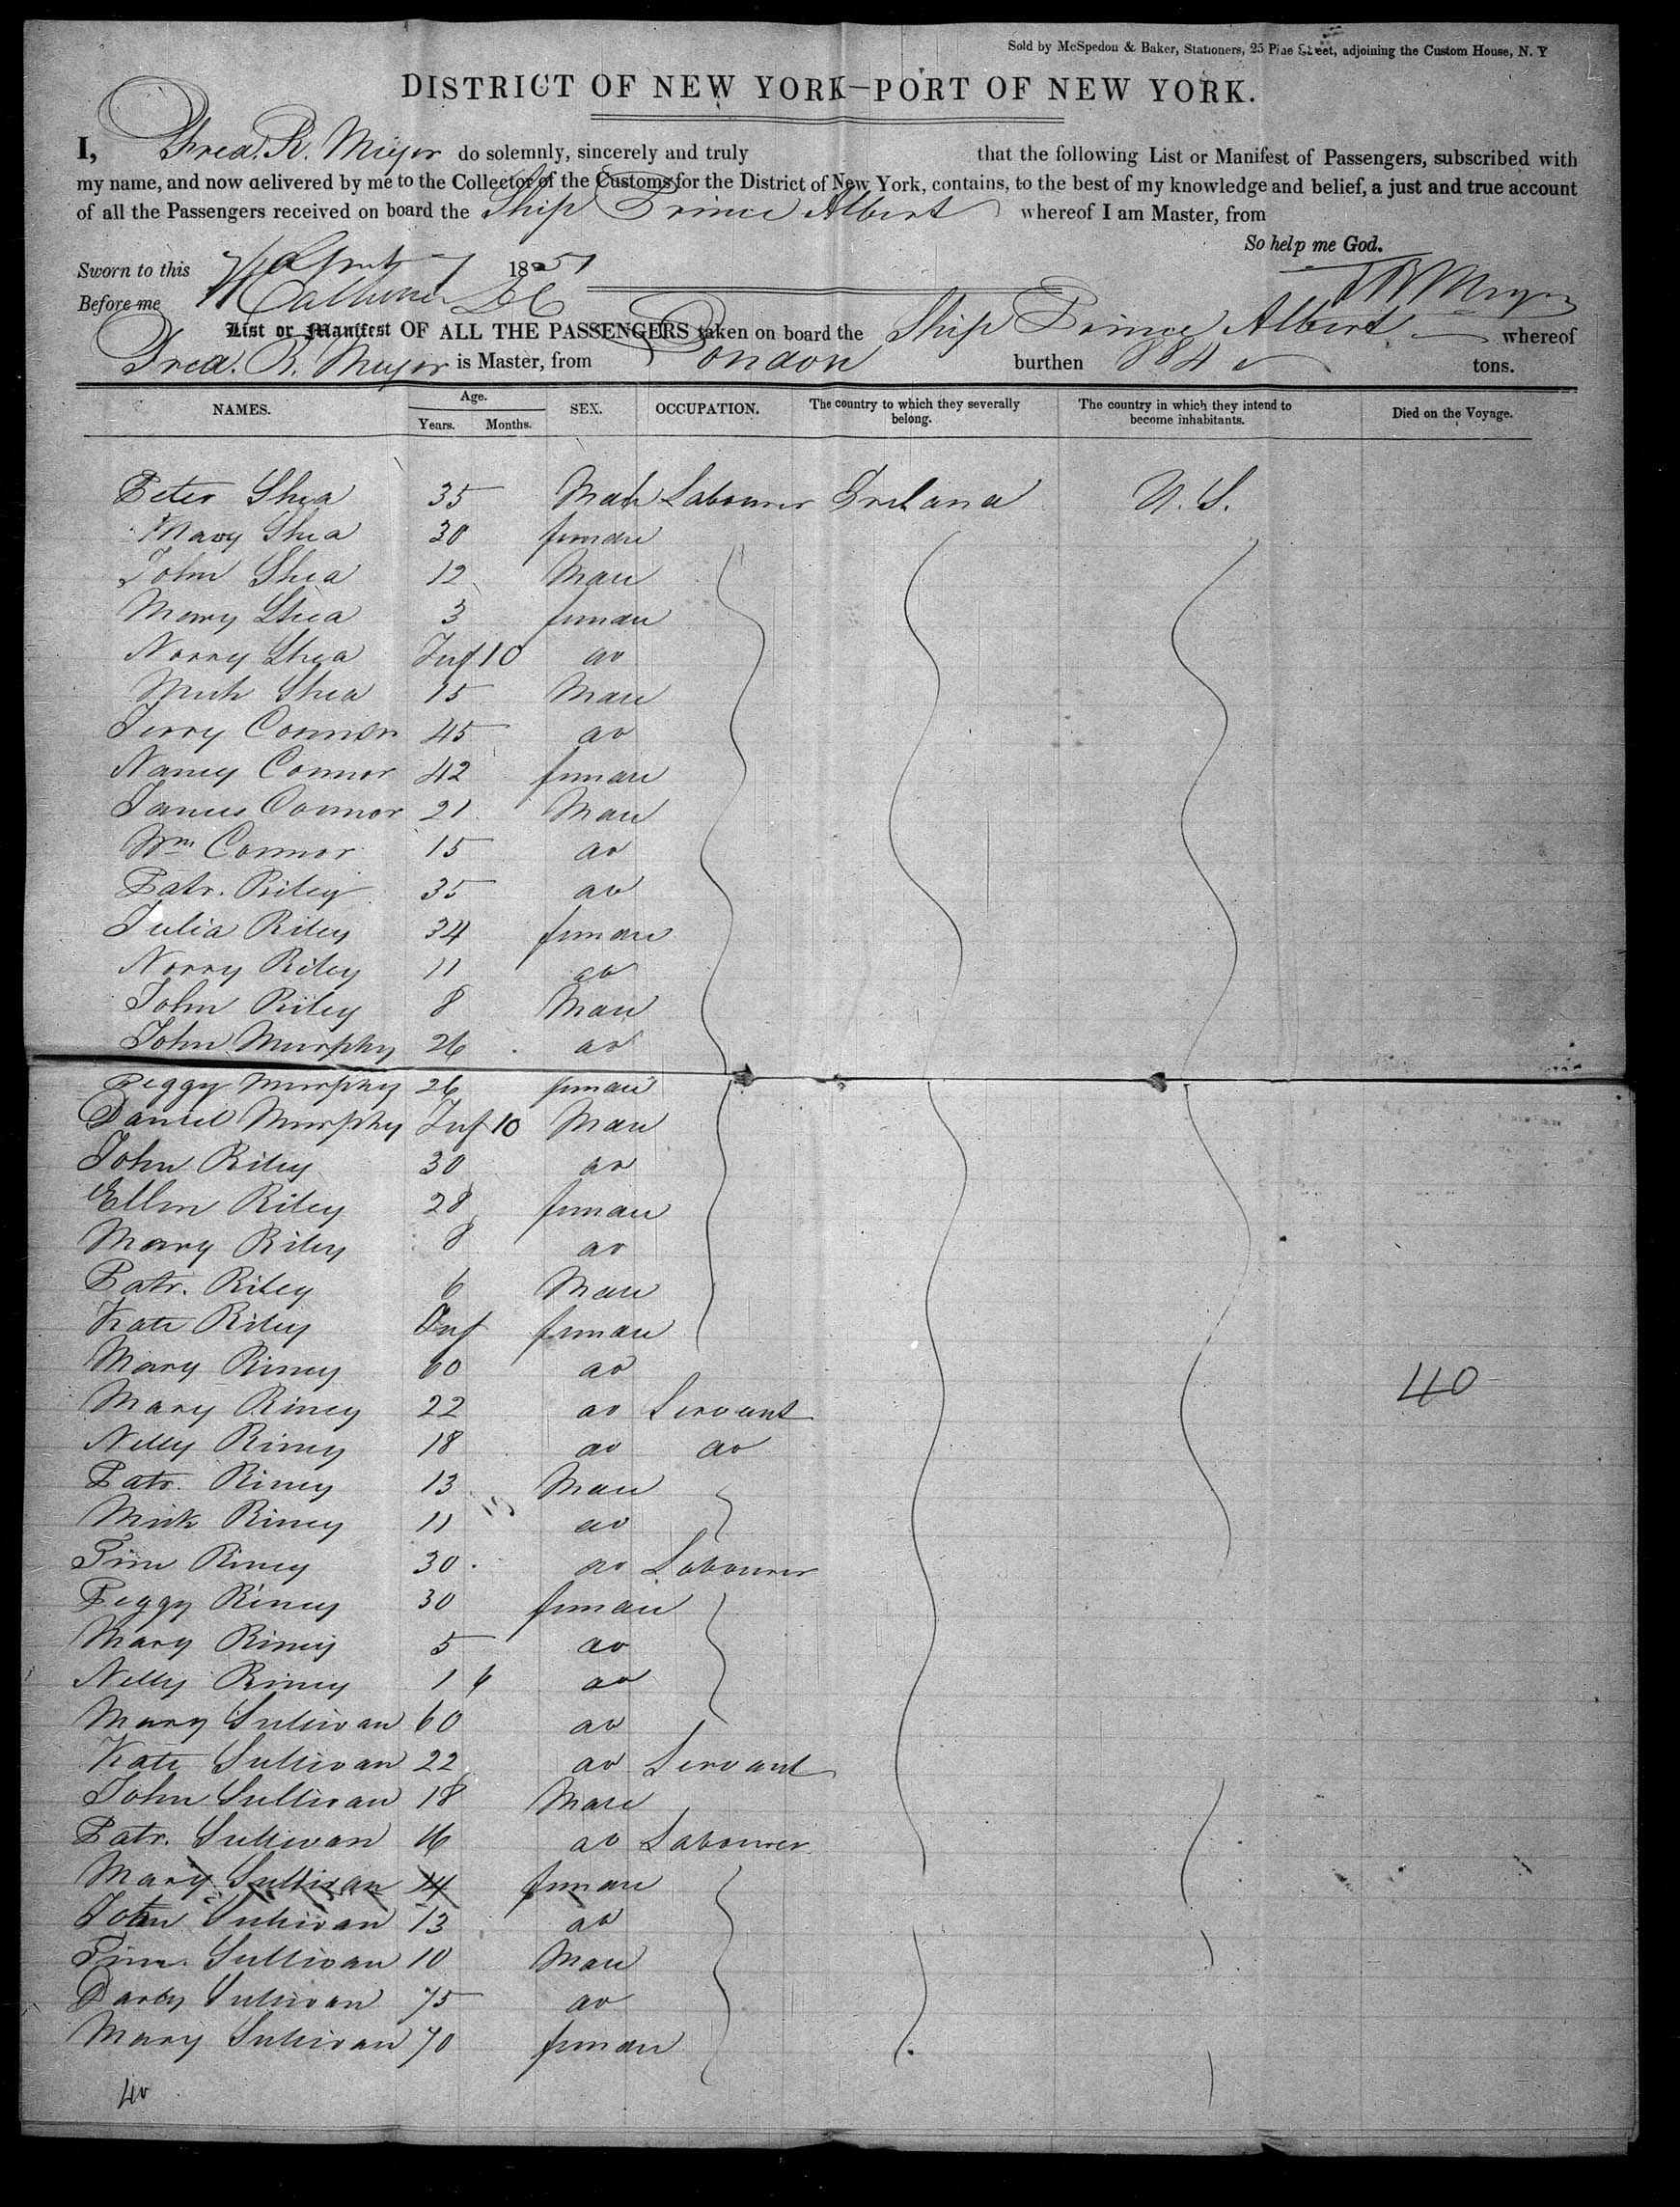 Sold by McSpedon & Baker, Stationers, 25 Pine Street, adjoining the Custom House, N. Y
DISTRICT OF NEW YORK—PORT OF NEW YORK.
I, Fred. R. Meyer do solemnly, sincerely and truly that the following List or Manifest of Passengers, subscribed with
my name, and now delivered by me to the Collector of the Customs for the District of New York, contains, to the best of my knowledge and belief, a just and true account
of all the Passengers received on board the Ship Prince Albert whereof I am Master, from
So help me God.
Sworn to this April 7 1851
Before me
List or Manifest OF ALL THE PASSENGERS taken on board the Ship Prince Albert whereof
Fred. R. Meyer is Master, from London burthen 884 tons.
NAMES. Age. Years. Months. SEX. OCCUPATION. The country to which they severally belong. The country in which they intend to become inhabitants. Died on the Voyage.
Peter Shea 35 Male Labourer Ireland U. S.
Mary Shea 30 female
John Shea 12 Male
Mary Shea 3 female
Norry Shea Inf 10 do
Mich Shea 15 Male
Jerry Connor 45 do
Nancy Connor 42 female
James Connor 21 Male
Wm Connor 15 do
Patr. Riley 35 do
Julia Riley 34 female
Norry Riley 11 do
John Riley 8 Male
John Murphy 26 do
Peggy Murphy 26 female
Daniel Murphy Inf 10 Male
John Riley 30 do
Ellen Riley 28 female
Mary Riley 8 do
Patr. Riley 6 Male
Kate Riley Inf female
Mary Riney 60 do 40
Mary Riney 22 do Servant
Nelly Riney 18 do do
Patr. Riney 13 Male
Mick Riney 11 do
Tim Riney 30 do Labourer
Peggy Riney 30 female
Mary Riney 5 do
Nelly Riney 1 6 do
Mary Sullivan 60 do
Kate Sullivan 22 do Servant
John Sullivan 18 Male
Patr. Sullivan 16 do Labourer
Mary Sullivan 14 female
John Sullivan 13 do
Tim. Sullivan 10 Male
Darby Sullivan 75 do
Mary Sullivan 70 female
40